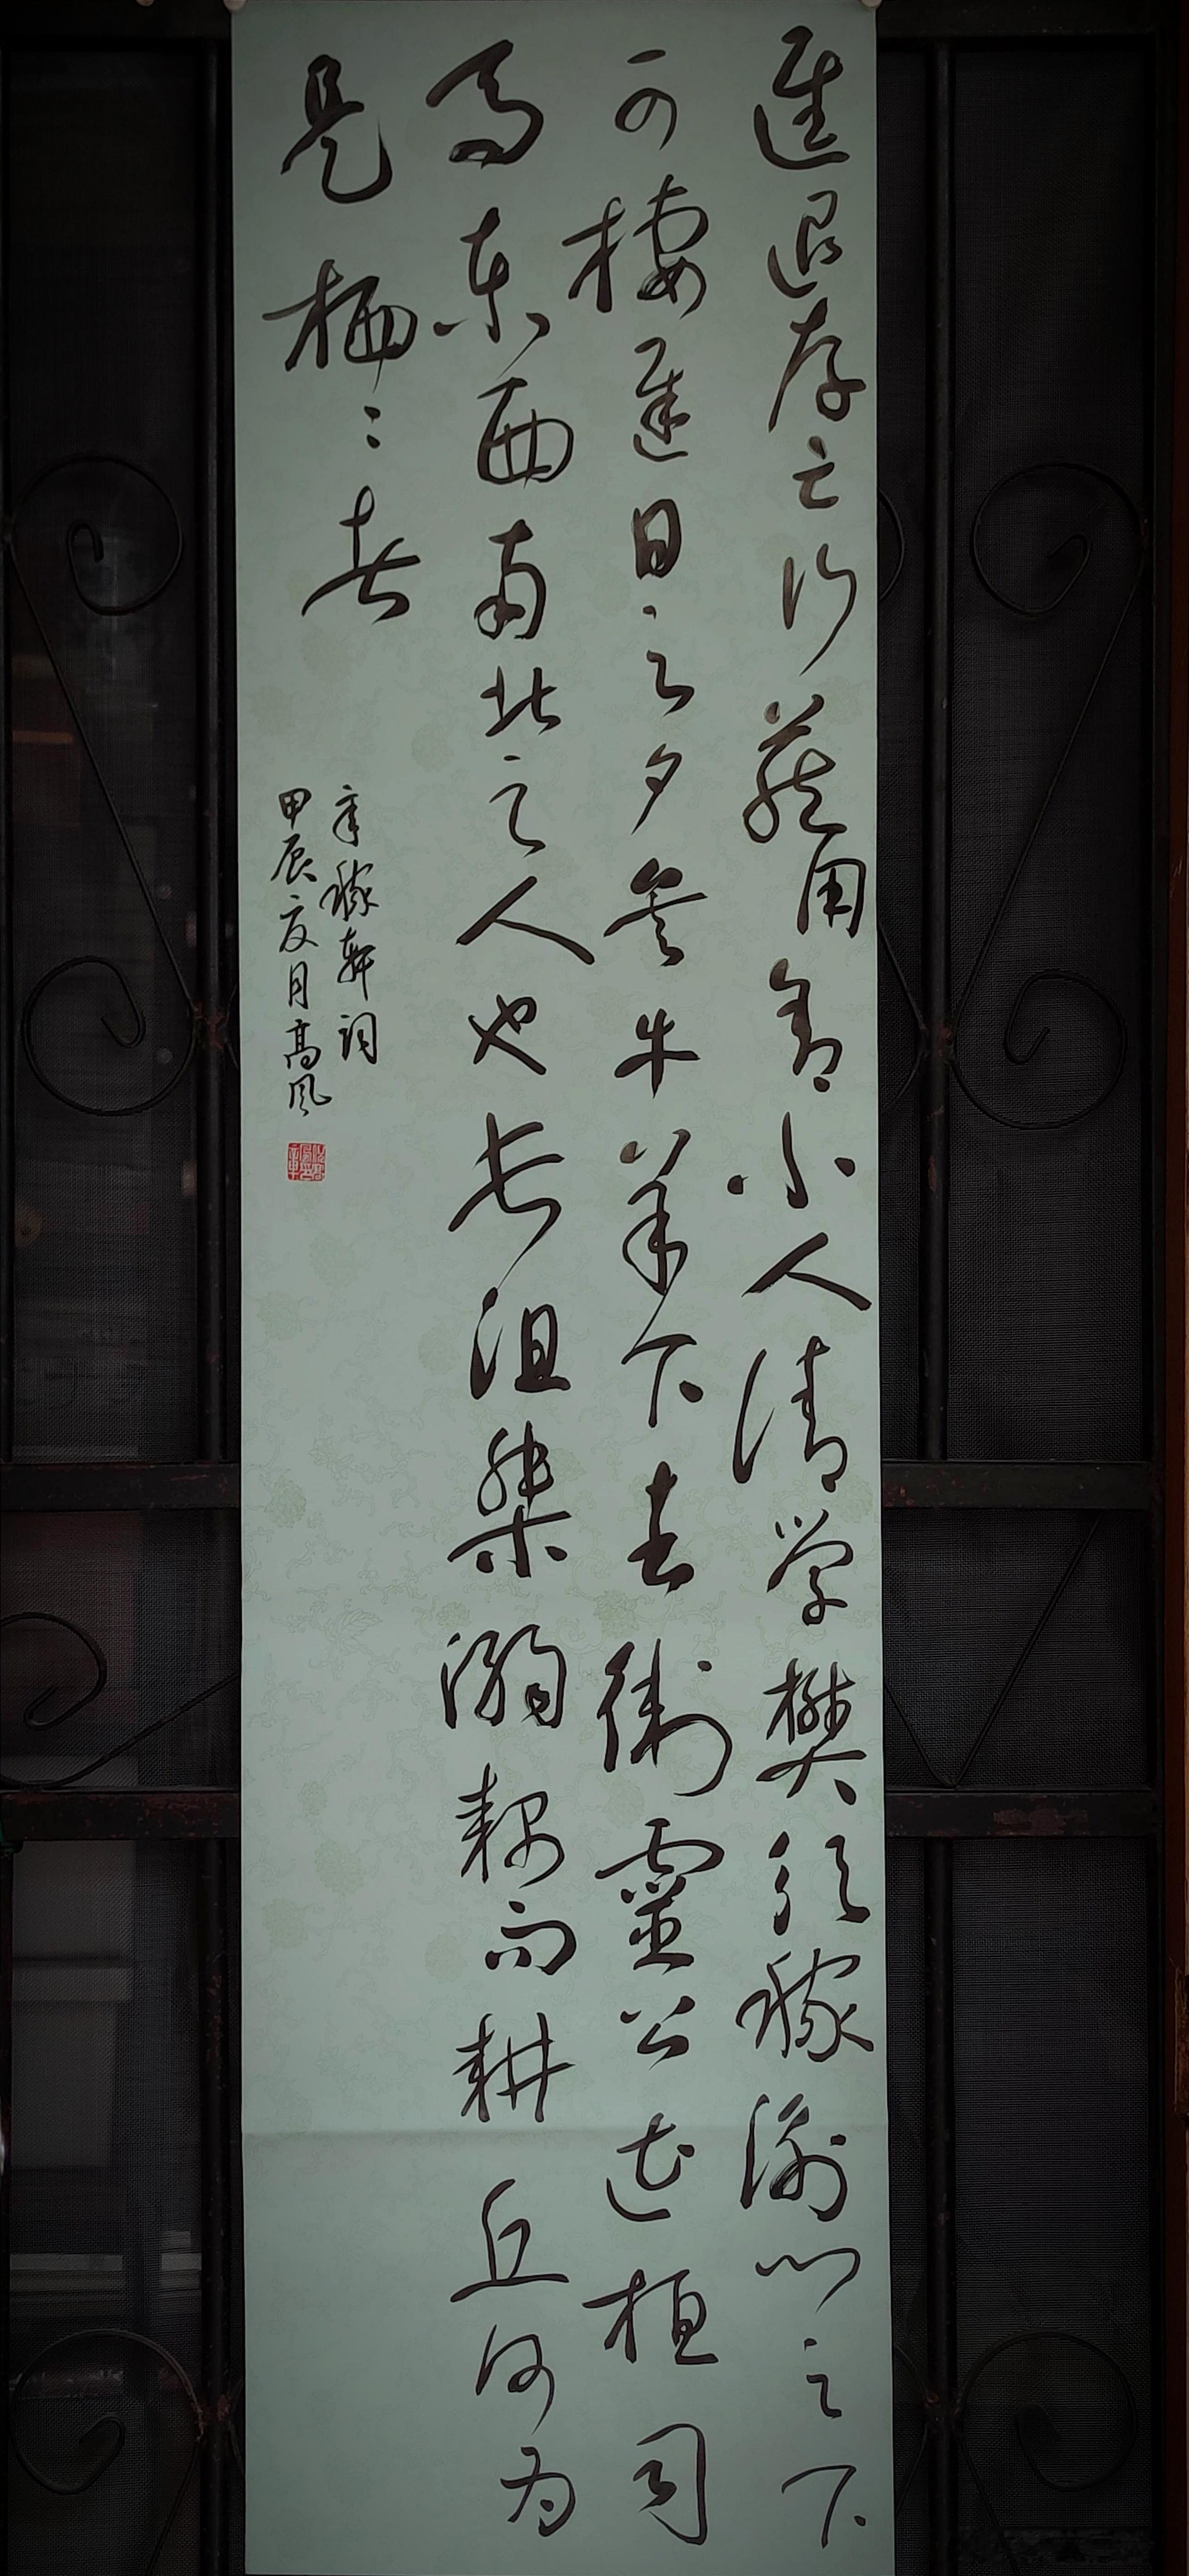 進退存亡行藏用舍小人請学樊須稼衡门之下
可棲遲日之夕矣牛羊下去衛靈公遭桓司
馬东西南北之人也長沮桀溺耦而耕丘何为
是栖〻者
辛稼軒詞
甲辰夏月高风